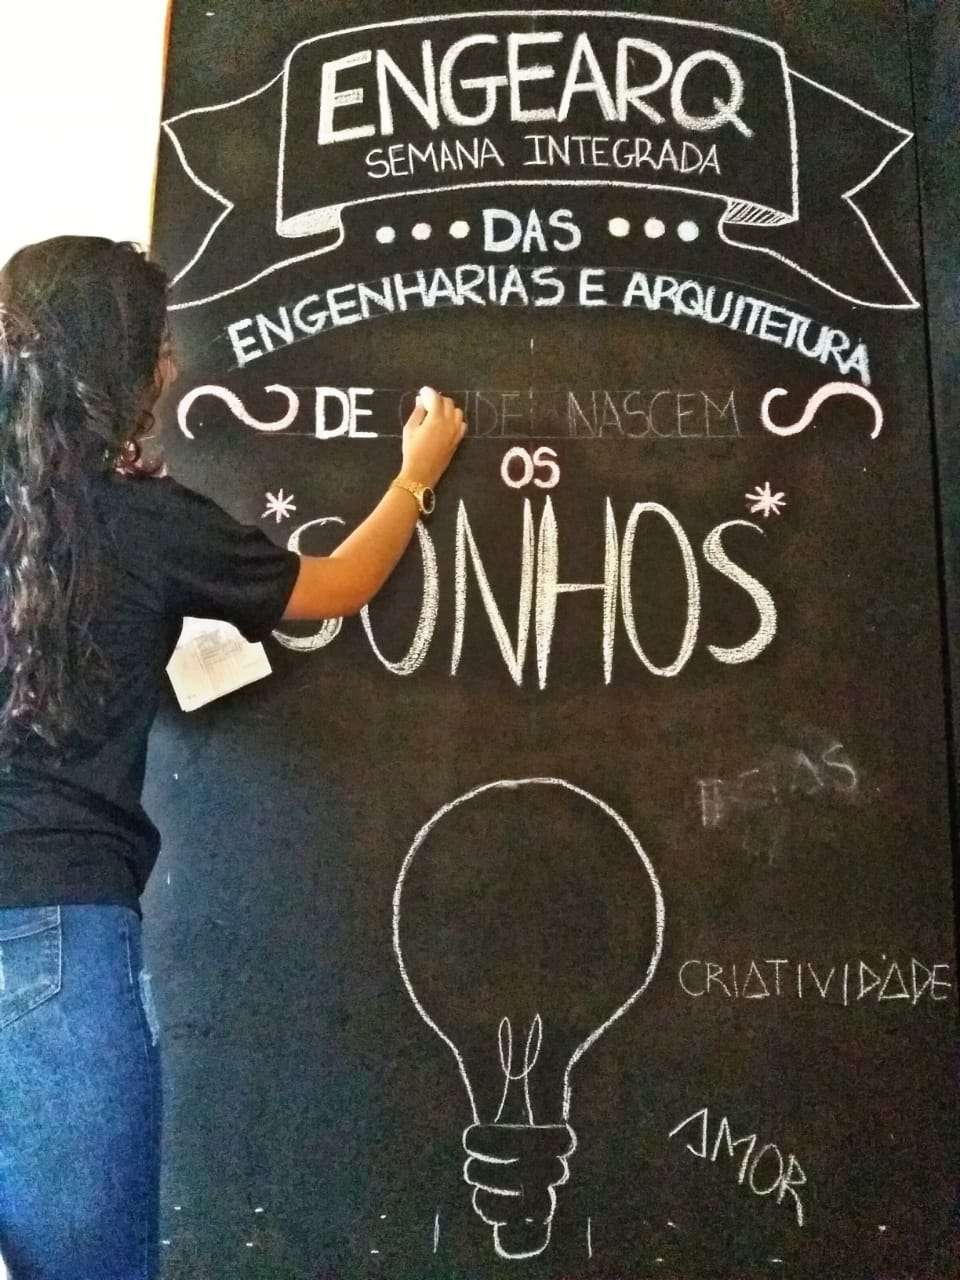 ENGEARQ
SEMANA INTEGRADA
DAS
ENGENHARIAS E ARQUITETURA
DE ONDE NASCEM
OS
SONHOS
CRIATIVIDADE
AMOR